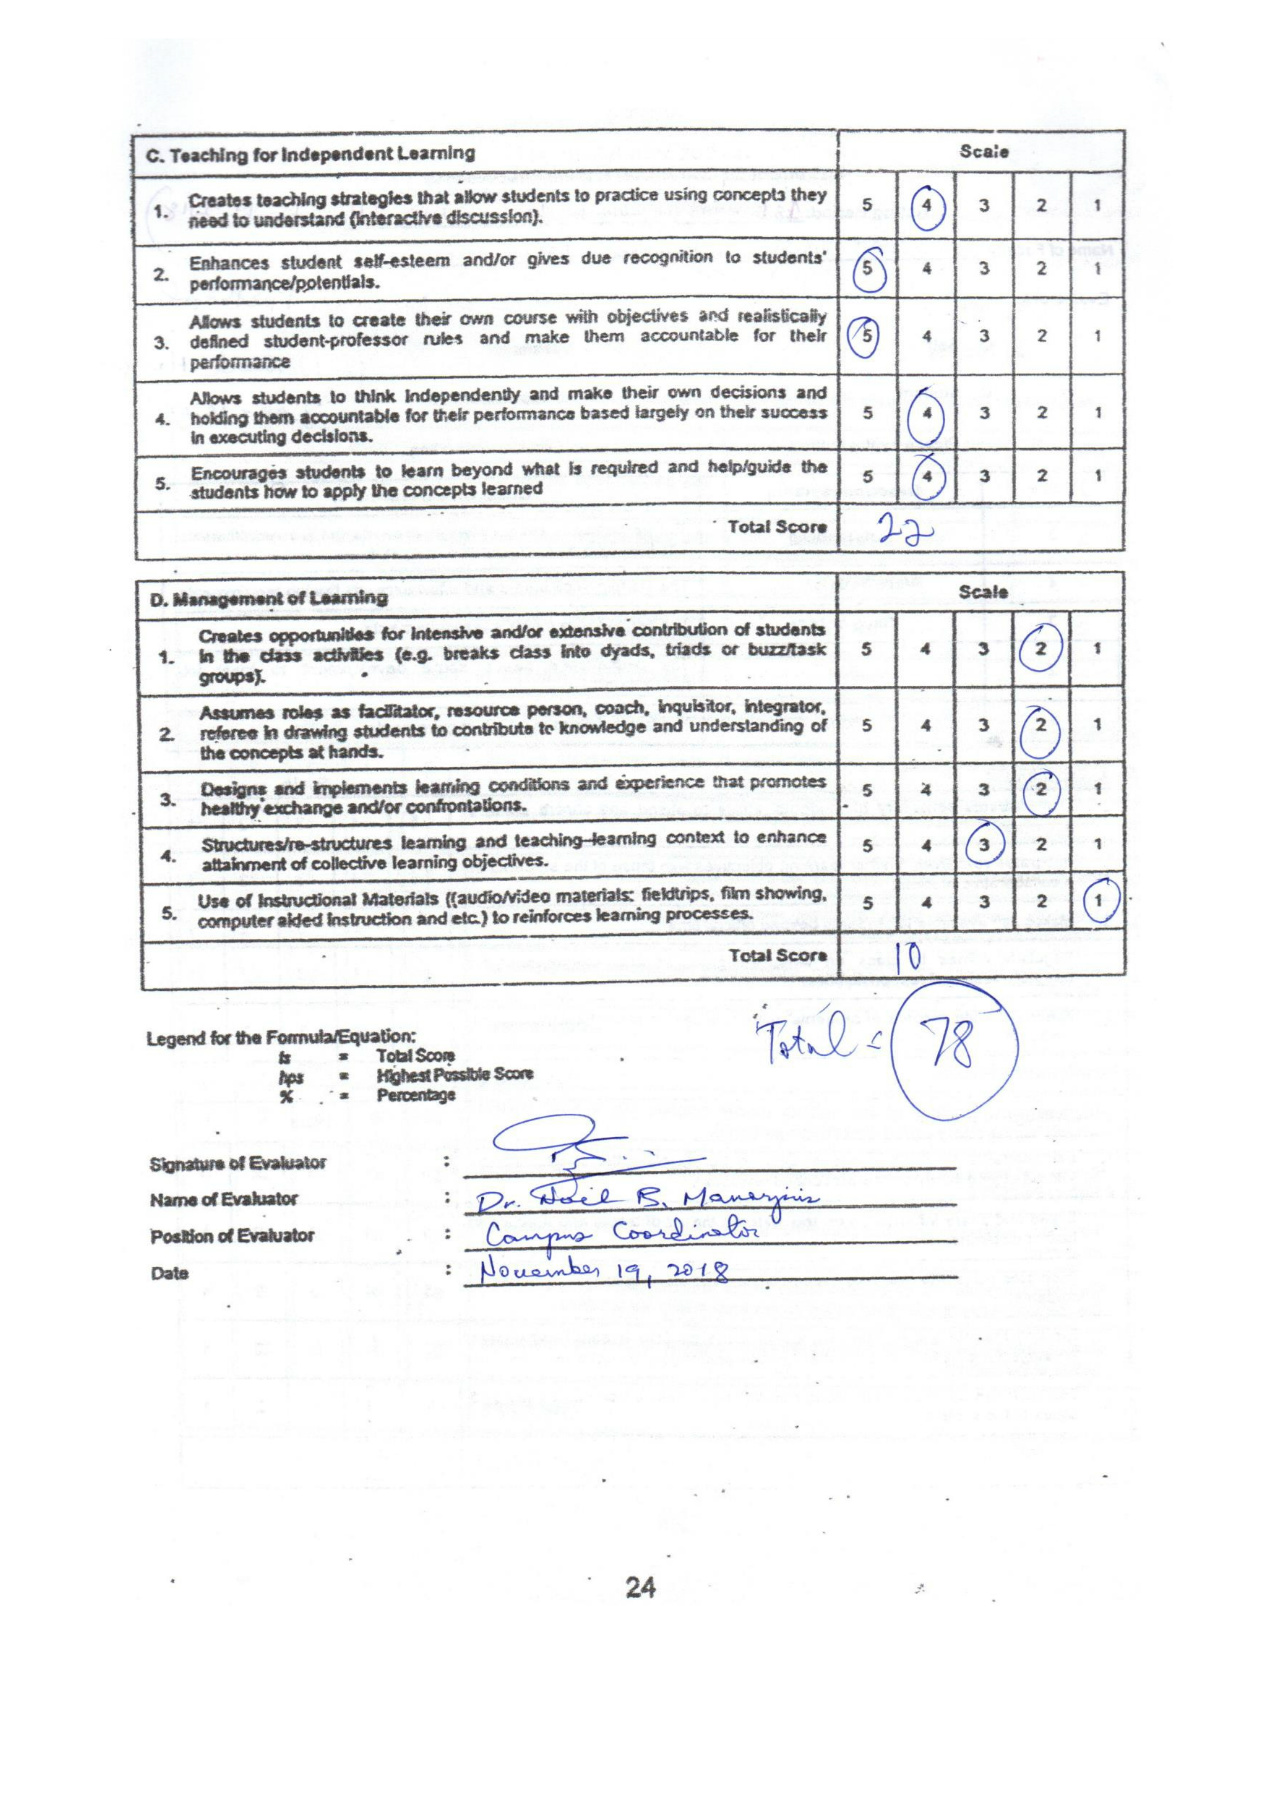 C. Teaching for Independent Learning Scale
1. Creates teaching strategies that allow students to practice using concepts they
need to understand (interactive discussion). 5 4 3 2 1
2. Enhances student self-esteem and/or gives due recognition to students'
performance/potentials. 5 4 3 2 1
3. Allows students to create their own course with objectives and realistically
defined student-professor rules and make them accountable for their
performance 5 4 3 2 1
4. Allows students to think independently and make their own decisions and
holding them accountable for their performance based largely on their success
in executing decisions. 5 4 3 2 1
5. Encourages students to learn beyond what is required and help/guide the
students how to apply the concepts learned 5 4 3 2 1
Total Score 22
D. Management of Learning Scale
1. Creates opportunities for intensive and/or extensive contribution of students
in the class activities (e.g. breaks class into dyads, triads or buzz/task
groups). 5 4 3 2 1
2. Assumes roles as facilitator, resource person, coach, inquisitor, integrator,
referee in drawing students to contribute to knowledge and understanding of
the concepts at hands. 5 4 3 2 1
3. Designs and implements learning conditions and experience that promotes
healthy exchange and/or confrontations. 5 4 3 2 1
4. Structures/re-structures learning and teaching-learning context to enhance
attainment of collective learning objectives. 5 4 3 2 1
5. Use of Instructional Materials ((audio/video materials: fieldtrips, film showing,
computer aided instruction and etc.) to reinforces learning processes. 5 4 3 2 1
Total Score 10
Total = 78
Legend for the Formula/Equation:
ts = Total Score
hps = Highest Possible Score
% = Percentage
Signature of Evaluator :
Name of Evaluator : Dr. B.
Position of Evaluator : Campus Coordinator
Date : November 19, 2018
24